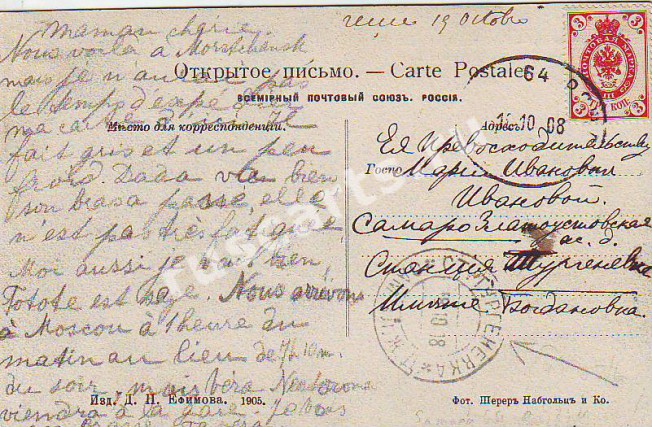 reçue 19 Octobre
Maman chérie.
Nous voilà à Morschansk
mais je n'aurai pas
le temps d'expedier
ma carte d'ici. Il
fait gris et un peu
froid. Dada va bien
son bras a passé, elle
n'est pas très fatiguée
Moi aussi je vais bien
Totote est sage. Nous arrivons
à Moscou à 1 heure du
matin au lieu de 7 h 10 m.
du soir, mais
viendra à la gare. Je vous
Открытое письмо. — Carte Postale
ВСЕМІРНЫЙ ПОЧТОВЫЙ СОЮЗЪ. РОССІЯ.
Мѣсто для корреспонденціи.
Адресъ.
3
3
КОП.
64
10 08
Ея Превосходительству
Госпо
Маріи Ивановнѣ
Ивановой.
Самаро Златоустовская
ж. д.
Станція Тургеневка
Имѣніе Богдановка.
ТУРГЕНЕВКА
Изд. Д. П. Ефимова. 1905.
Фот. Шереръ Набгольцъ и Ко.